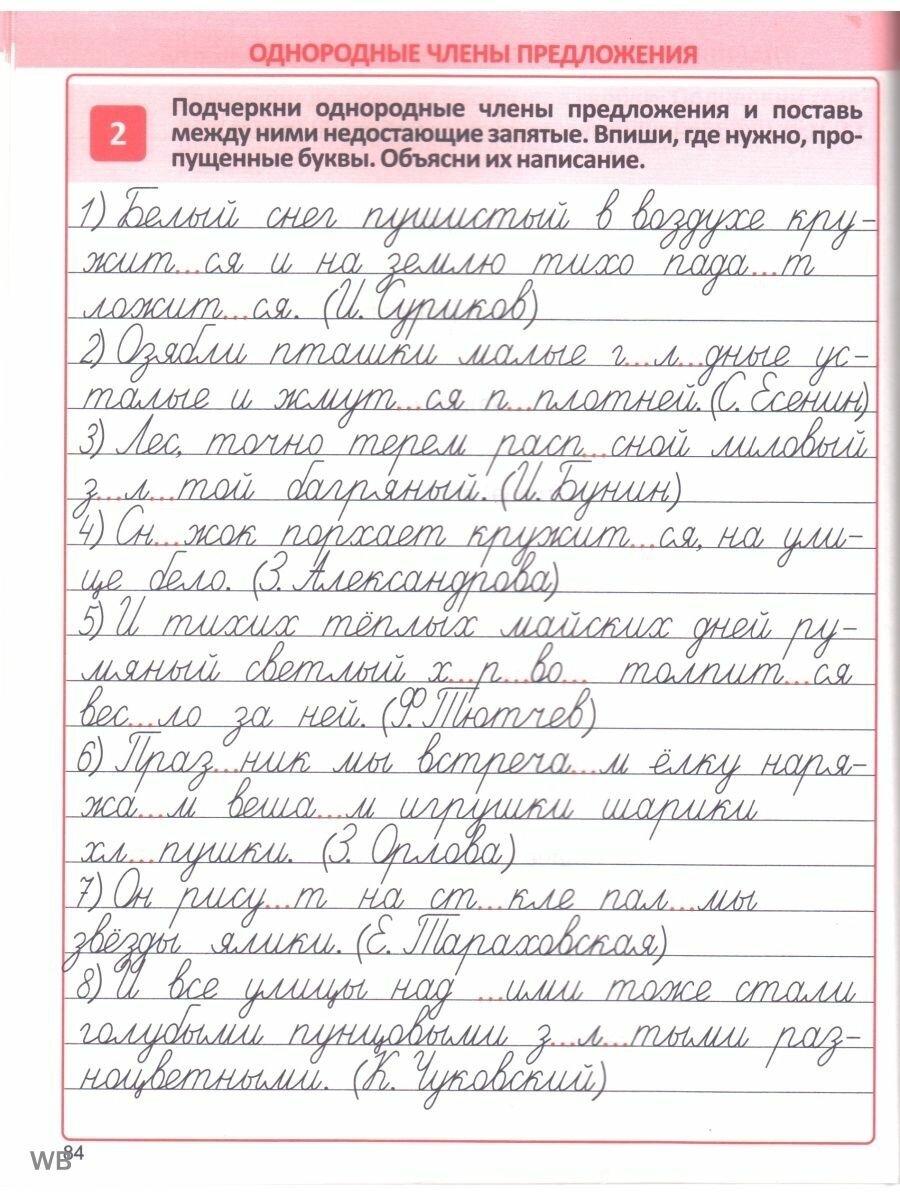 ОДНОРОДНЫЕ ЧЛЕНЫ ПРЕДЛОЖЕНИЯ
2
Подчеркни однородные члены предложения и поставь
между ними недостающие запятые. Впиши, где нужно, про-
пущенные буквы. Объясни их написание.
1) Белый снег пушистый в воздухе кру-
жит...ся и на землю тихо пада...т
ложит...ся. (И. Суриков)
2) Озябли пташки малые г...л...дные ус-
талые и жмут...ся п...плотней. (С. Есенин)
3) Лес, точно терем расп...сной лиловый
з...л...той багряный. (И. Бунин)
4) Сн...жок порхает кружит...ся, на ули-
це бело. (З. Александрова)
5) И тихих тёплых майских дней ру-
мяный светлый х...р...во... толпит...ся
вес...ло за ней. (Ф. Тютчев)
6) Праз...ник мы встреча...м ёлку наря-
жа...м веша...м игрушки шарики
хл...пушки. (З. Орлова)
7) Он рису...т на ст...кле пал...мы
звёзды ялики. (Е. Тараховская)
8) И все улицы над ...ими тоже стали
голубыми пунцовыми з...л...тыми раз-
ноцветными. (К. Чуковский)
84
WB